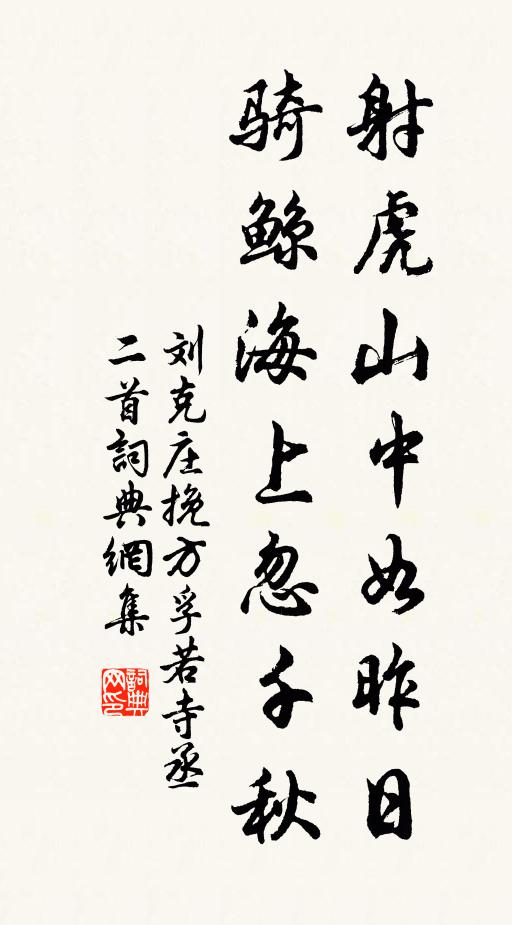 射虎山中如昨日
骑鲸海上忽千秋
刘克庄挽方孚若寺丞
二首詞典網集
詞典
网印